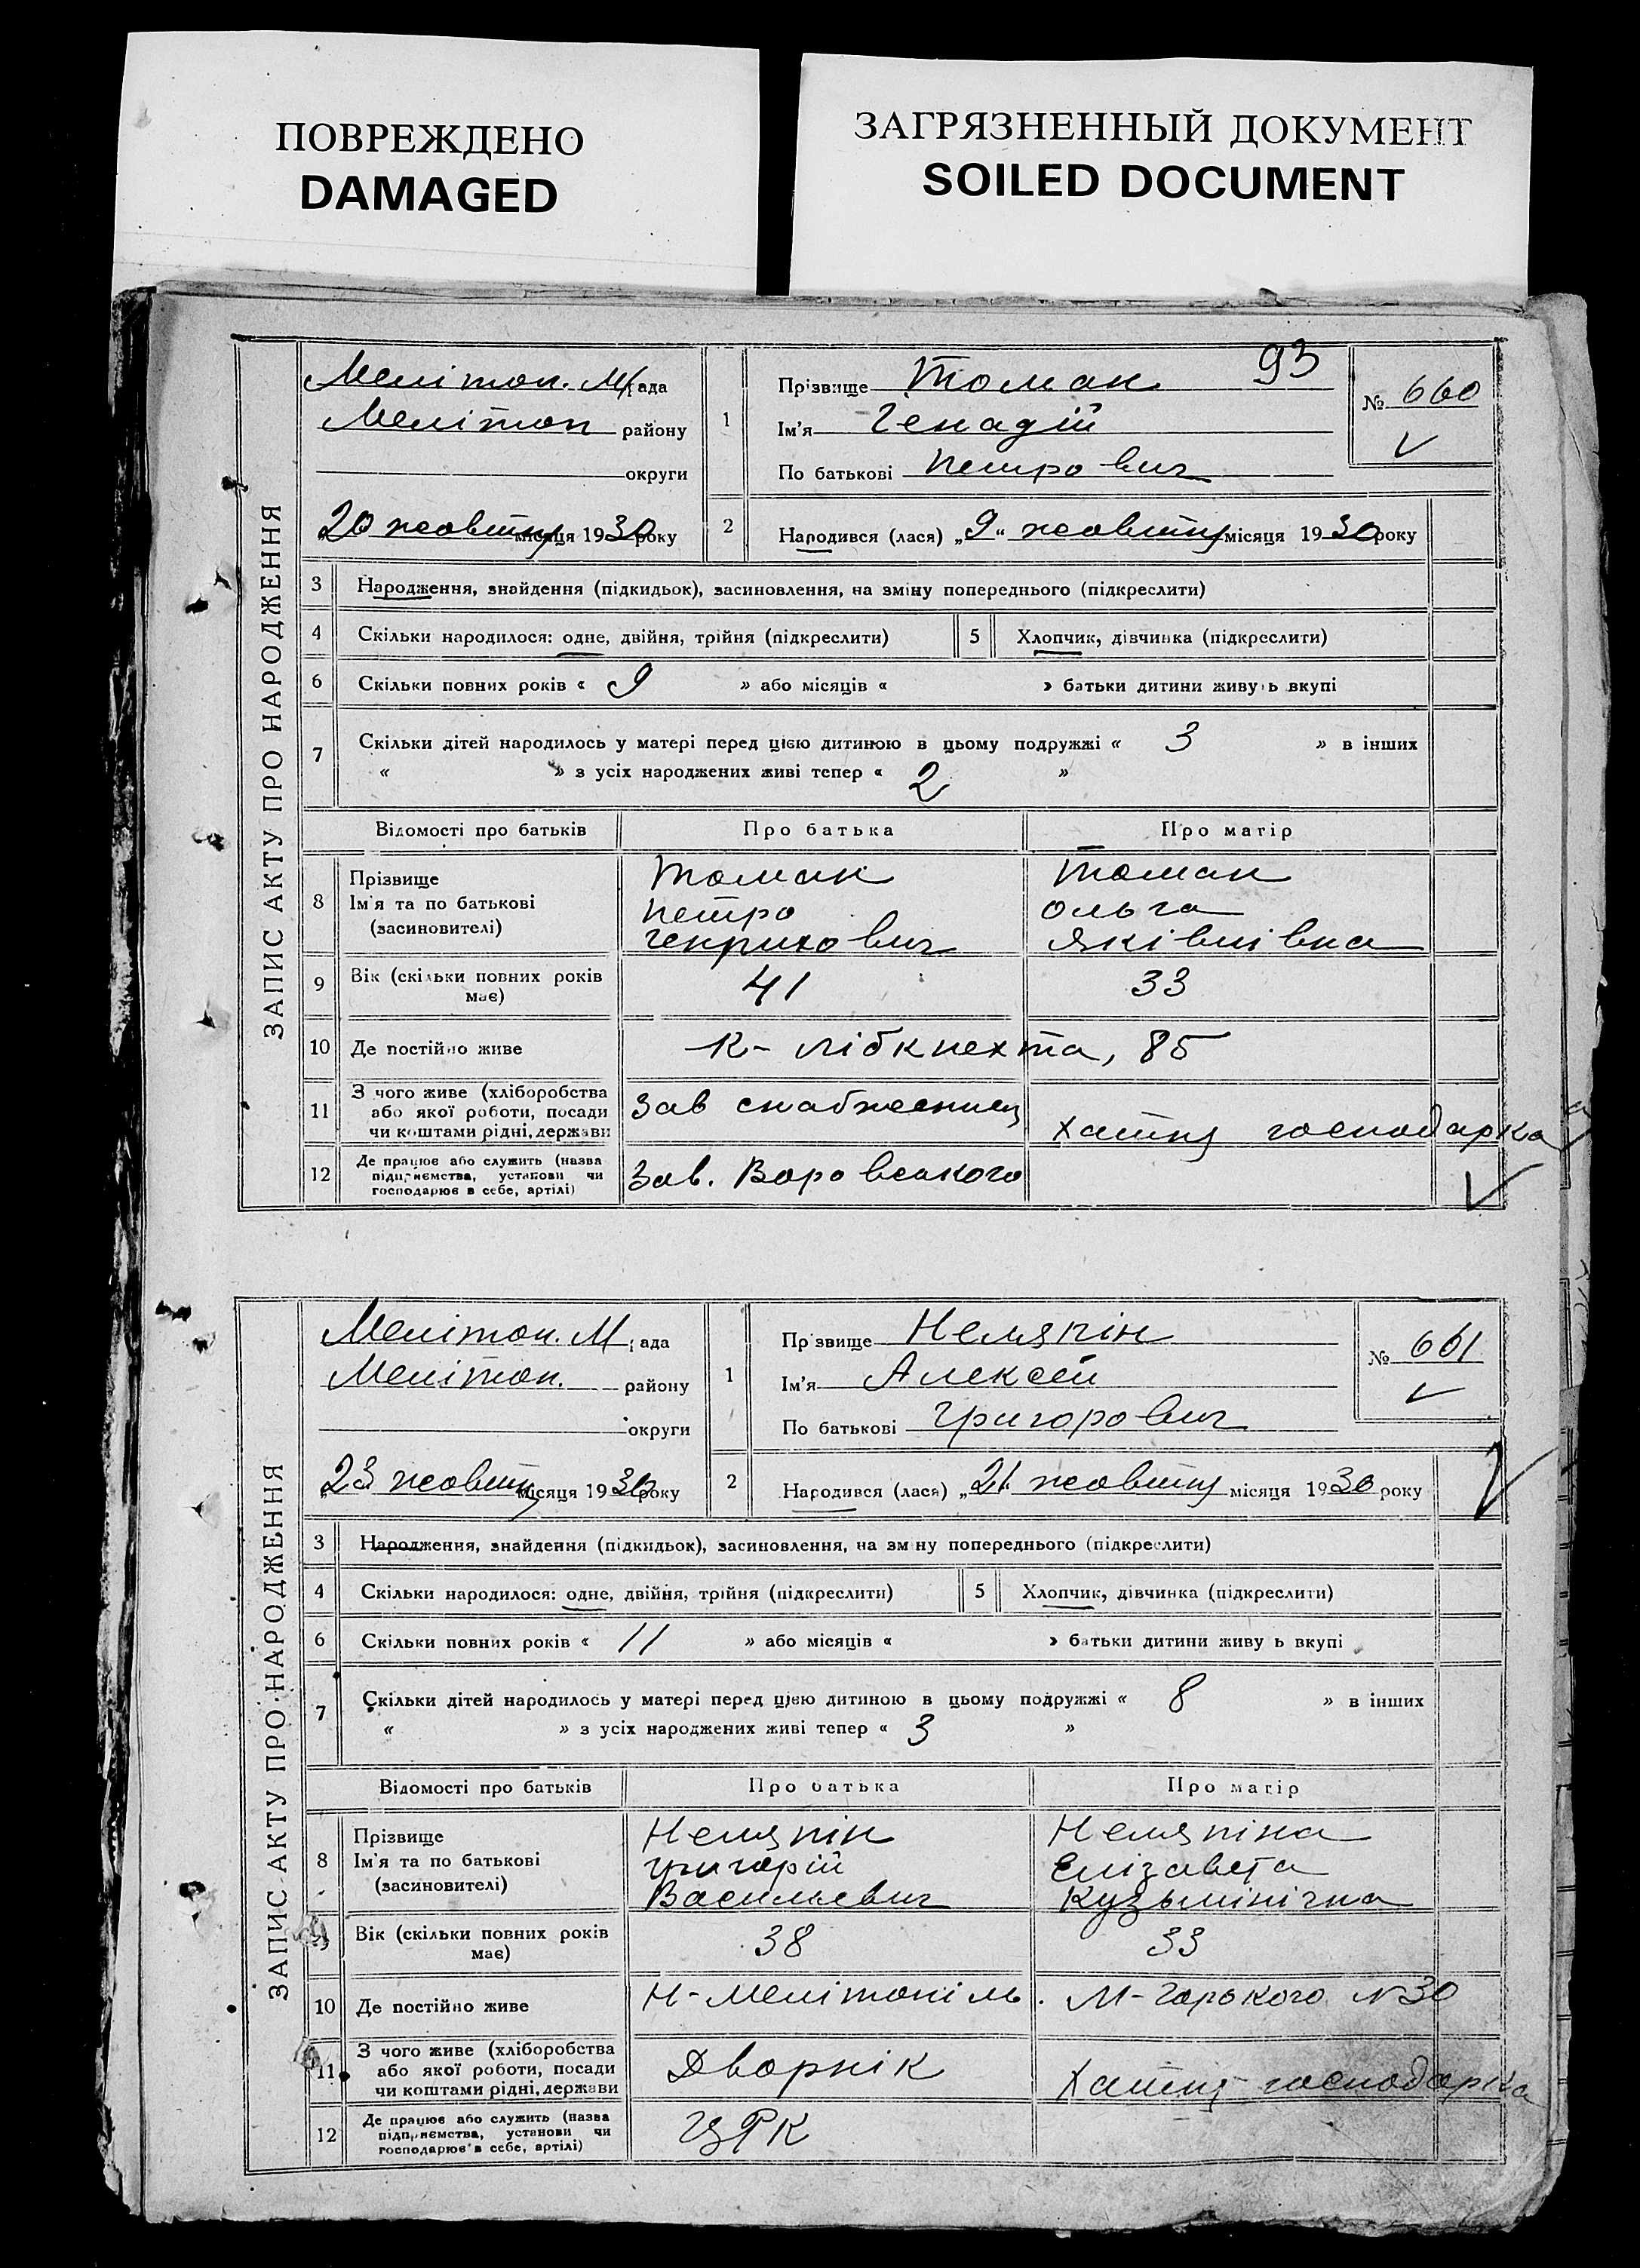 ПОВРЕЖДЕНО
DAMAGED
ЗАГРЯЗНЕННЫЙ ДОКУМЕНТ
SOILED DOCUMENT
93
ЗАПИС АКТУ ПРО НАРОДЖЕННЯ
Мелітоп. М/рада
Мелітоп району
округи
20 жовтня місяця 1930 року
1 Прізвище Томан
Ім'я Генадій
По батькові Петрович
№ 660
2 Народився (лася) „9“ жовтня місяця 1930 року
3 Народження, знайдення (підкидьок), засиновлення, на зміну попереднього (підкреслити)
4 Скільки народилося: одне, двійня, трійня (підкреслити) 5 Хлопчик, дівчинка (підкреслити)
6 Скільки повних років « 9 » або місяців « » батьки дитини живуть вкупі
7 Скільки дітей народилось у матері перед цією дитиною в цьому подружжі « 3 » в інших
« » з усіх народжених живі тепер « 2 »
Відомості про батьків Про батька Про матір
8 Прізвище Томан Томан
Ім'я та по батькові Петро Ольга
(засиновителі) Генрихович Яківлівна
9 Вік (скільки повних років має) 41 33
10 Де постійно живе К- Лібкнехта, 85
11 З чого живе (хліборобства
або якої роботи, посади
чи коштами рідні, держави
Зав снабжения Хатня господарка
12 Де працює або служить (назва
підприємства, установи чи
господарює в себе, артілі)
Зав. Воровського
ЗАПИС АКТУ ПРО НАРОДЖЕННЯ
Мелітоп. М рада
Мелітоп. району
округи
23 жовтня місяця 1930 року
1 Прізвище Немяпін
Ім'я Алексей
По батькові Григорович
№ 661
2 Народився (лася) „21“ жовтня місяця 1930 року
3 Народження, знайдення (підкидьок), засиновлення, на зміну попереднього (підкреслити)
4 Скільки народилося: одне, двійня, трійня (підкреслити) 5 Хлопчик, дівчинка (підкреслити)
6 Скільки повних років « 11 » або місяців « » батьки дитини живуть вкупі
7 Скільки дітей народилось у матері перед цією дитиною в цьому подружжі « 8 » в інших
« » з усіх народжених живі тепер « 3 »
Відомості про батьків Про батька Про матір
8 Прізвище Немяпін Немяпіна
Ім'я та по батькові Григорій Елізавета
(засиновителі) Васильевич Кузьмінічна
9 Вік (скільки повних років має) 38 33
10 Де постійно живе Н-Мелітопіль. М-Горького №30
11 З чого живе (хліборобства
або якої роботи, посади
чи коштами рідні, держави
Дворнік Хатня господарка
12 Де працює або служить (назва
підприємства, установи чи
господарює в себе, артілі)
ЦРК